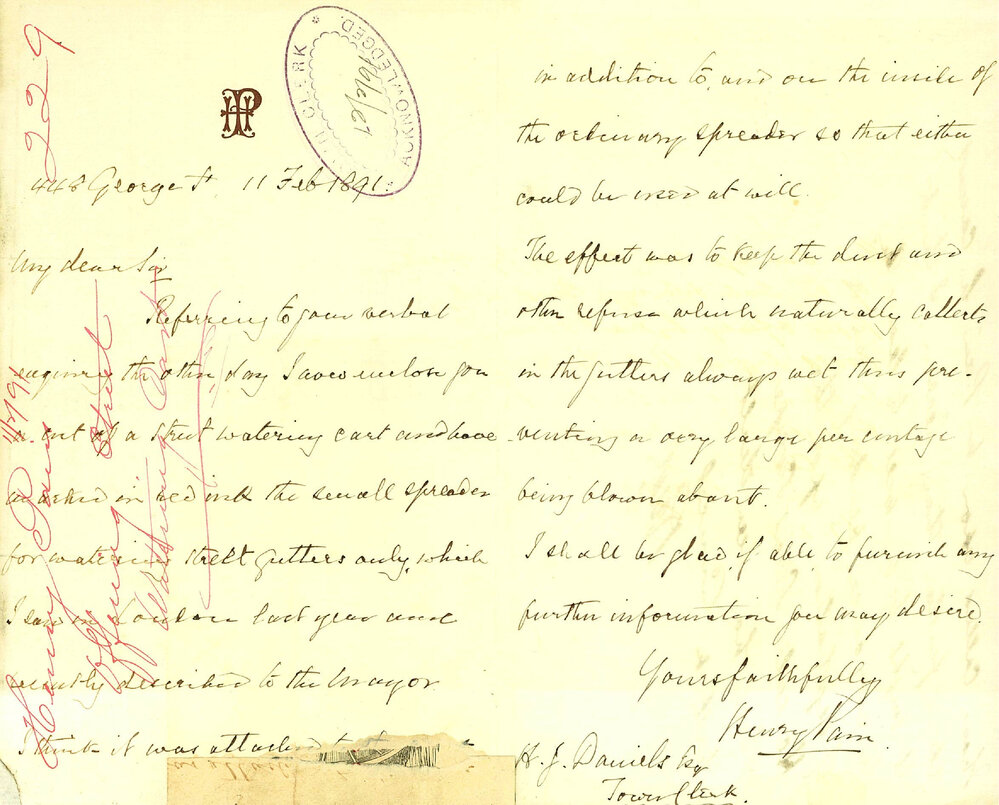 229
HP
TOWN CLERK
ACKNOWLEDGED.
448 George St. 11 Feb 1891
My dear Sir
Referring to your verbal
enquiry the other day I now enclose you
a cut of a street watering cart and have
marked in red ink the small spreader
for watering street gutters only, which
I saw in London last year and
recently described to the Mayor
I think it was attached to
in addition to, and on the inside of
the ordinary spreader so that either
could be used at will.
The effect was to keep the dust and
other refuse which naturally collects
in the gutters always wet thus pre-
venting a very large per centage
being blown about.
I shall be glad if able to furnish any
further information you may desire.
Yours faithfully
Henry Pain.
H. J. Daniels Esq
Town Clerk.
11/2/91
Henry Pain
Offering Street
Watering Cart